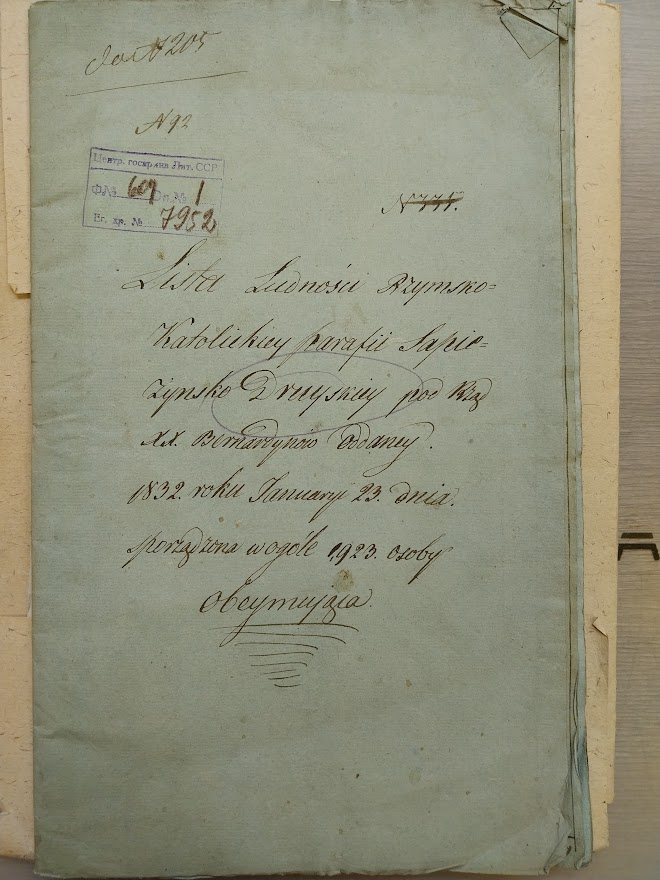 do N 205
N 92
Центр. госархив Лит. ССР
Ф.№ 604 Оп.№ 1
Ег. хр. № 7952
N 335.
Lista Ludności Rzymsko=
Katolickiey parafii Sapie=
żynsko Druyskiey pod Rząd
XX. Bernardynow oddaney.
1832. roku Januaryi 23. dnia.
porządzona w ogóle 1,923. osoby
obeymuiąca.